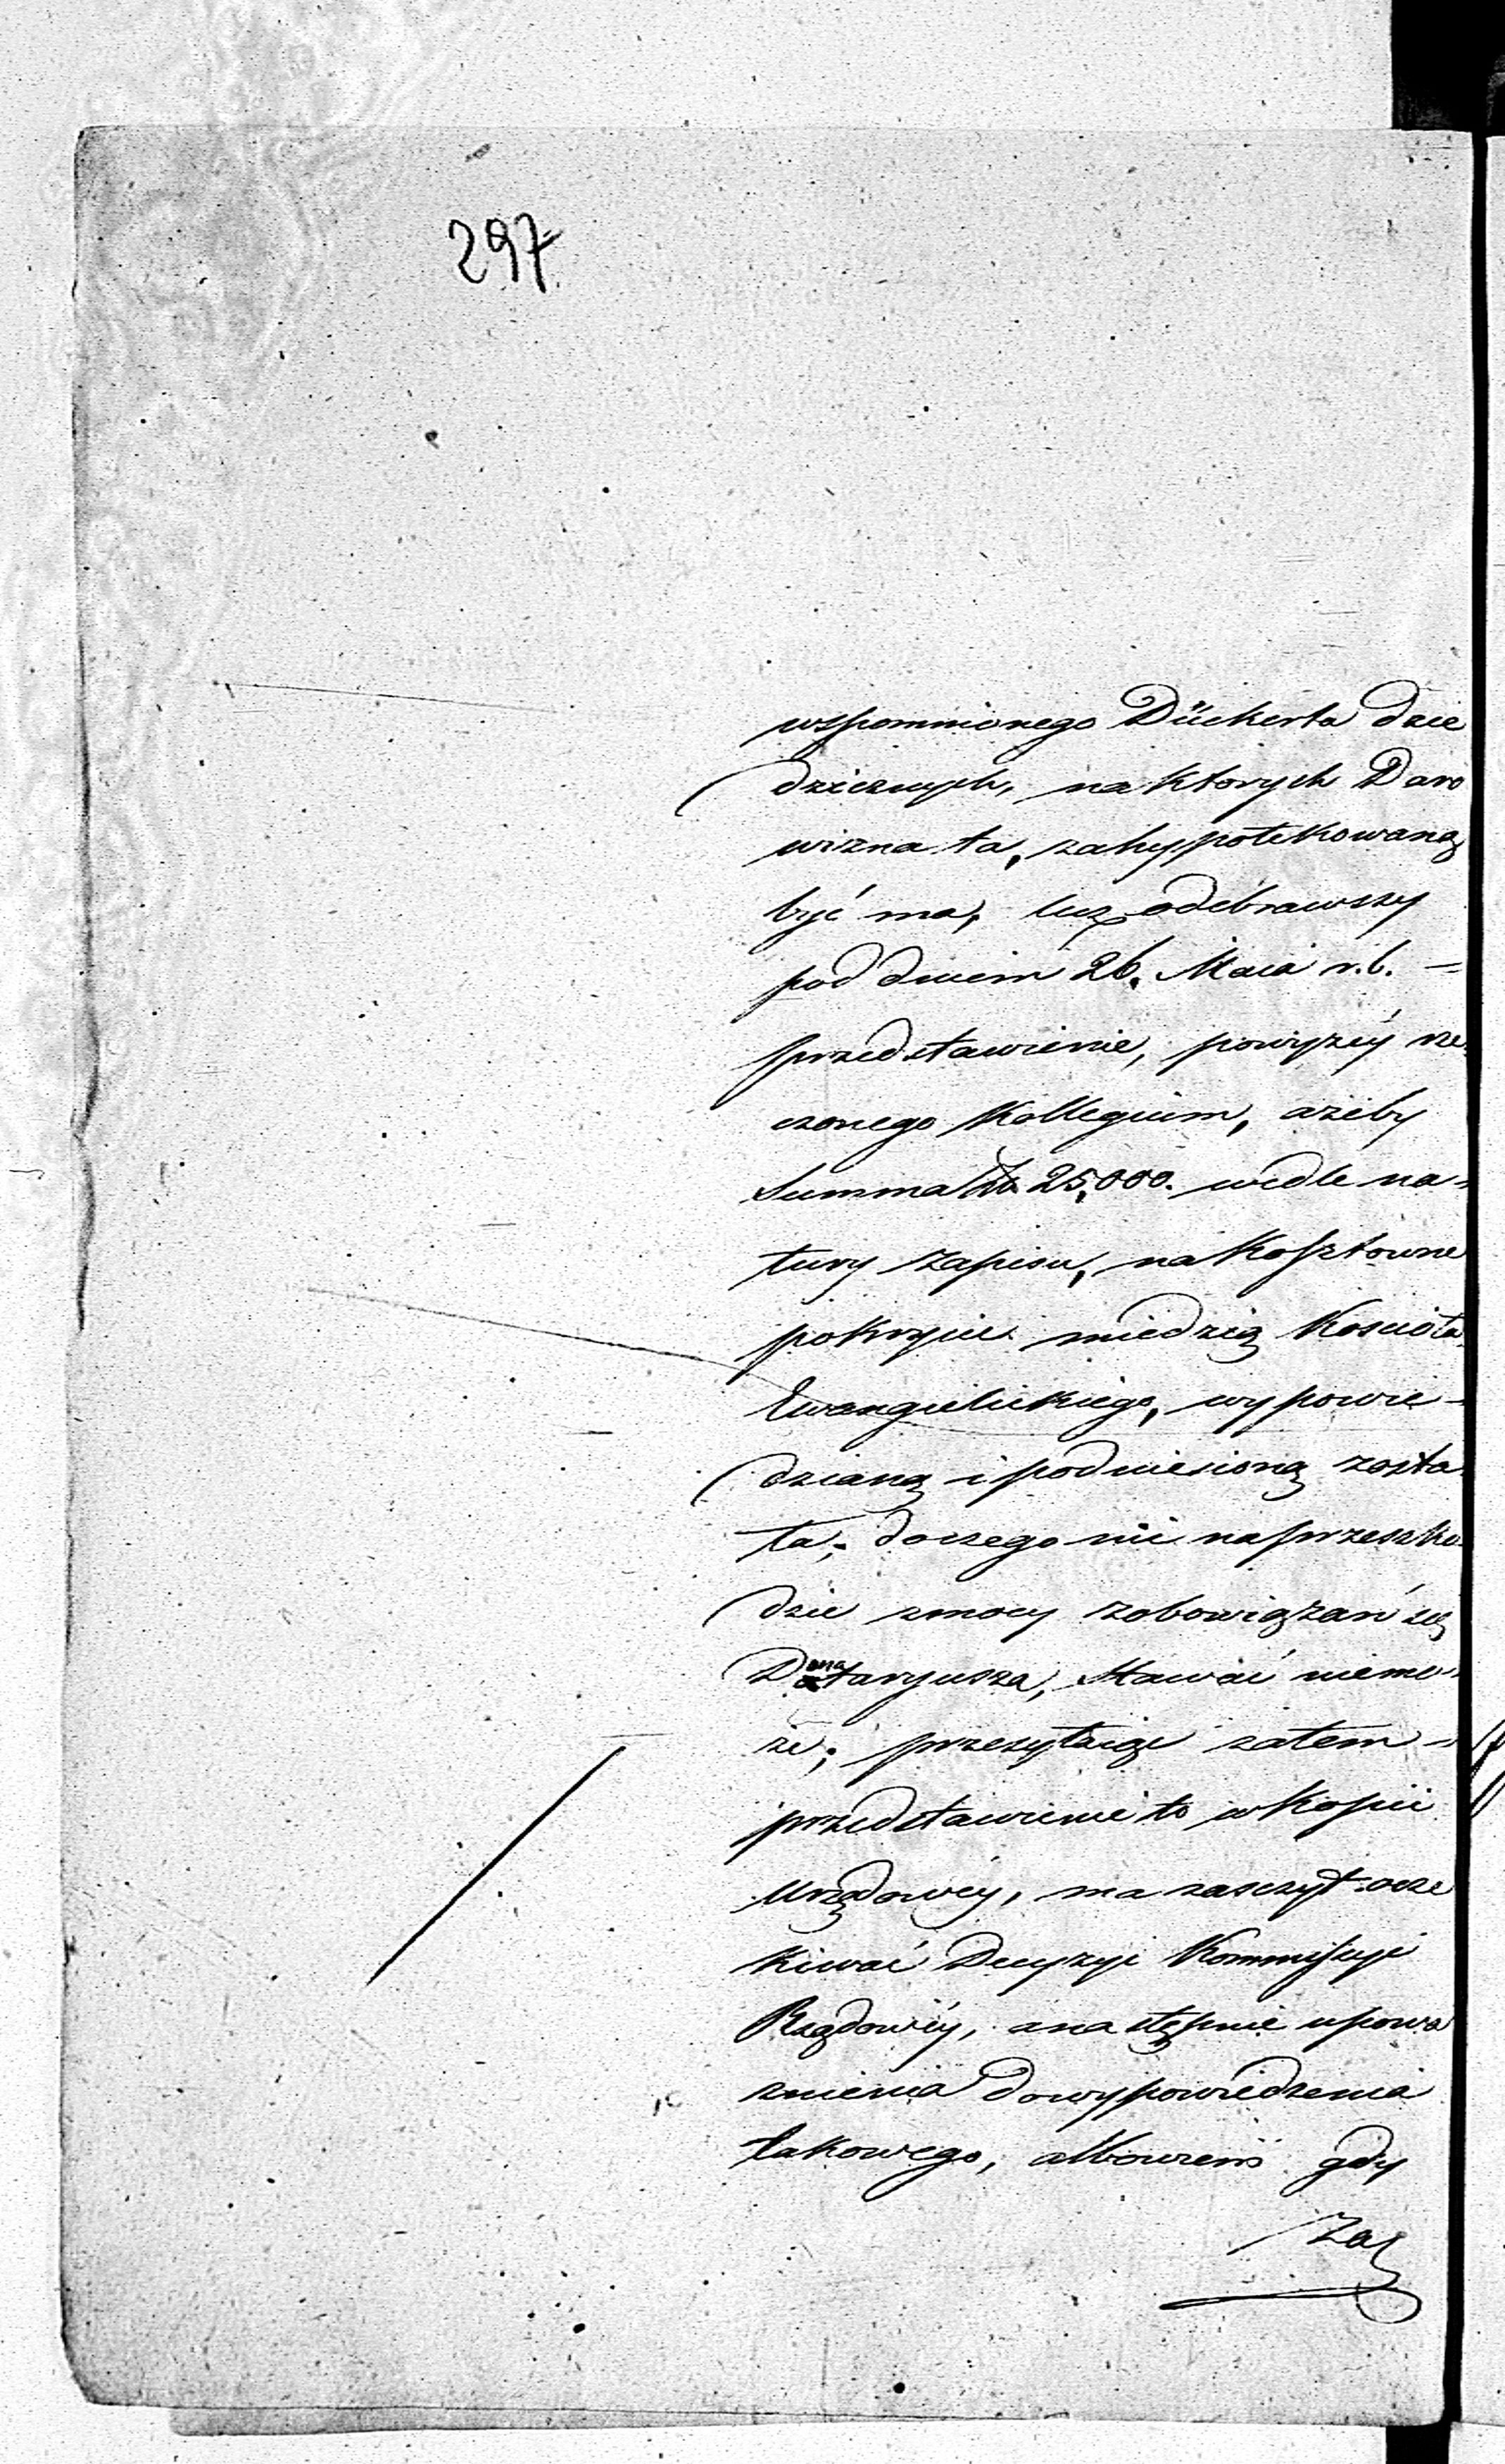 297
wspomnionego Dückerta dzie
dzicznych, na ktorych Daro
wizna ta, zahypotekowaną
być ma, lecz odebrawszy
pod dniem 26. Maia r.b. =
przedstawienie, powyżéy rze
czonego Kollegium, ażeby
Summa Zł 25,000. wedle na=
tury zapisu, na kosztowne
pokrycie miedzią Kosciola
Ewangielickiego, wypowie=
dzianą i podniesioną zosta
ła; do czego nic na przeszko
dzie z mocy zobowiązań się
Donataryusza, stawać niemo=
że; przesyłaiąc zatem =
przedstawienie to w Kopii
Urzędowéy, ma zaszczyt ocze
kiwać Decyzyi Kommissyi
Rządowéy, a następnie upowa
żnienia do wypowiedzenia
takowego, albowiem gdy
Zaś